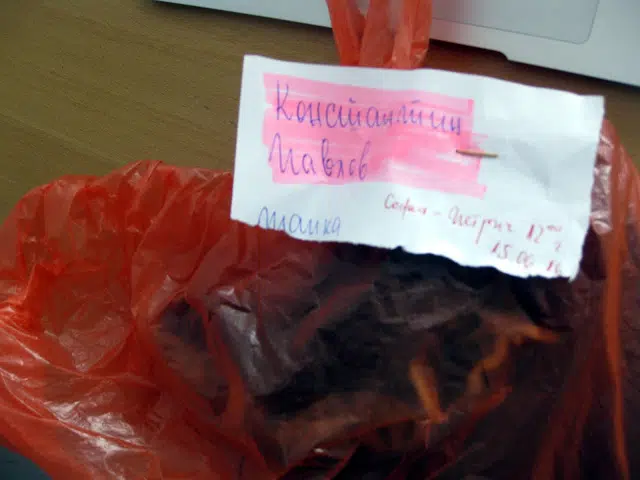 Константин
Павлов
шапка
София - Петрич 12ºº ч
15.06.16